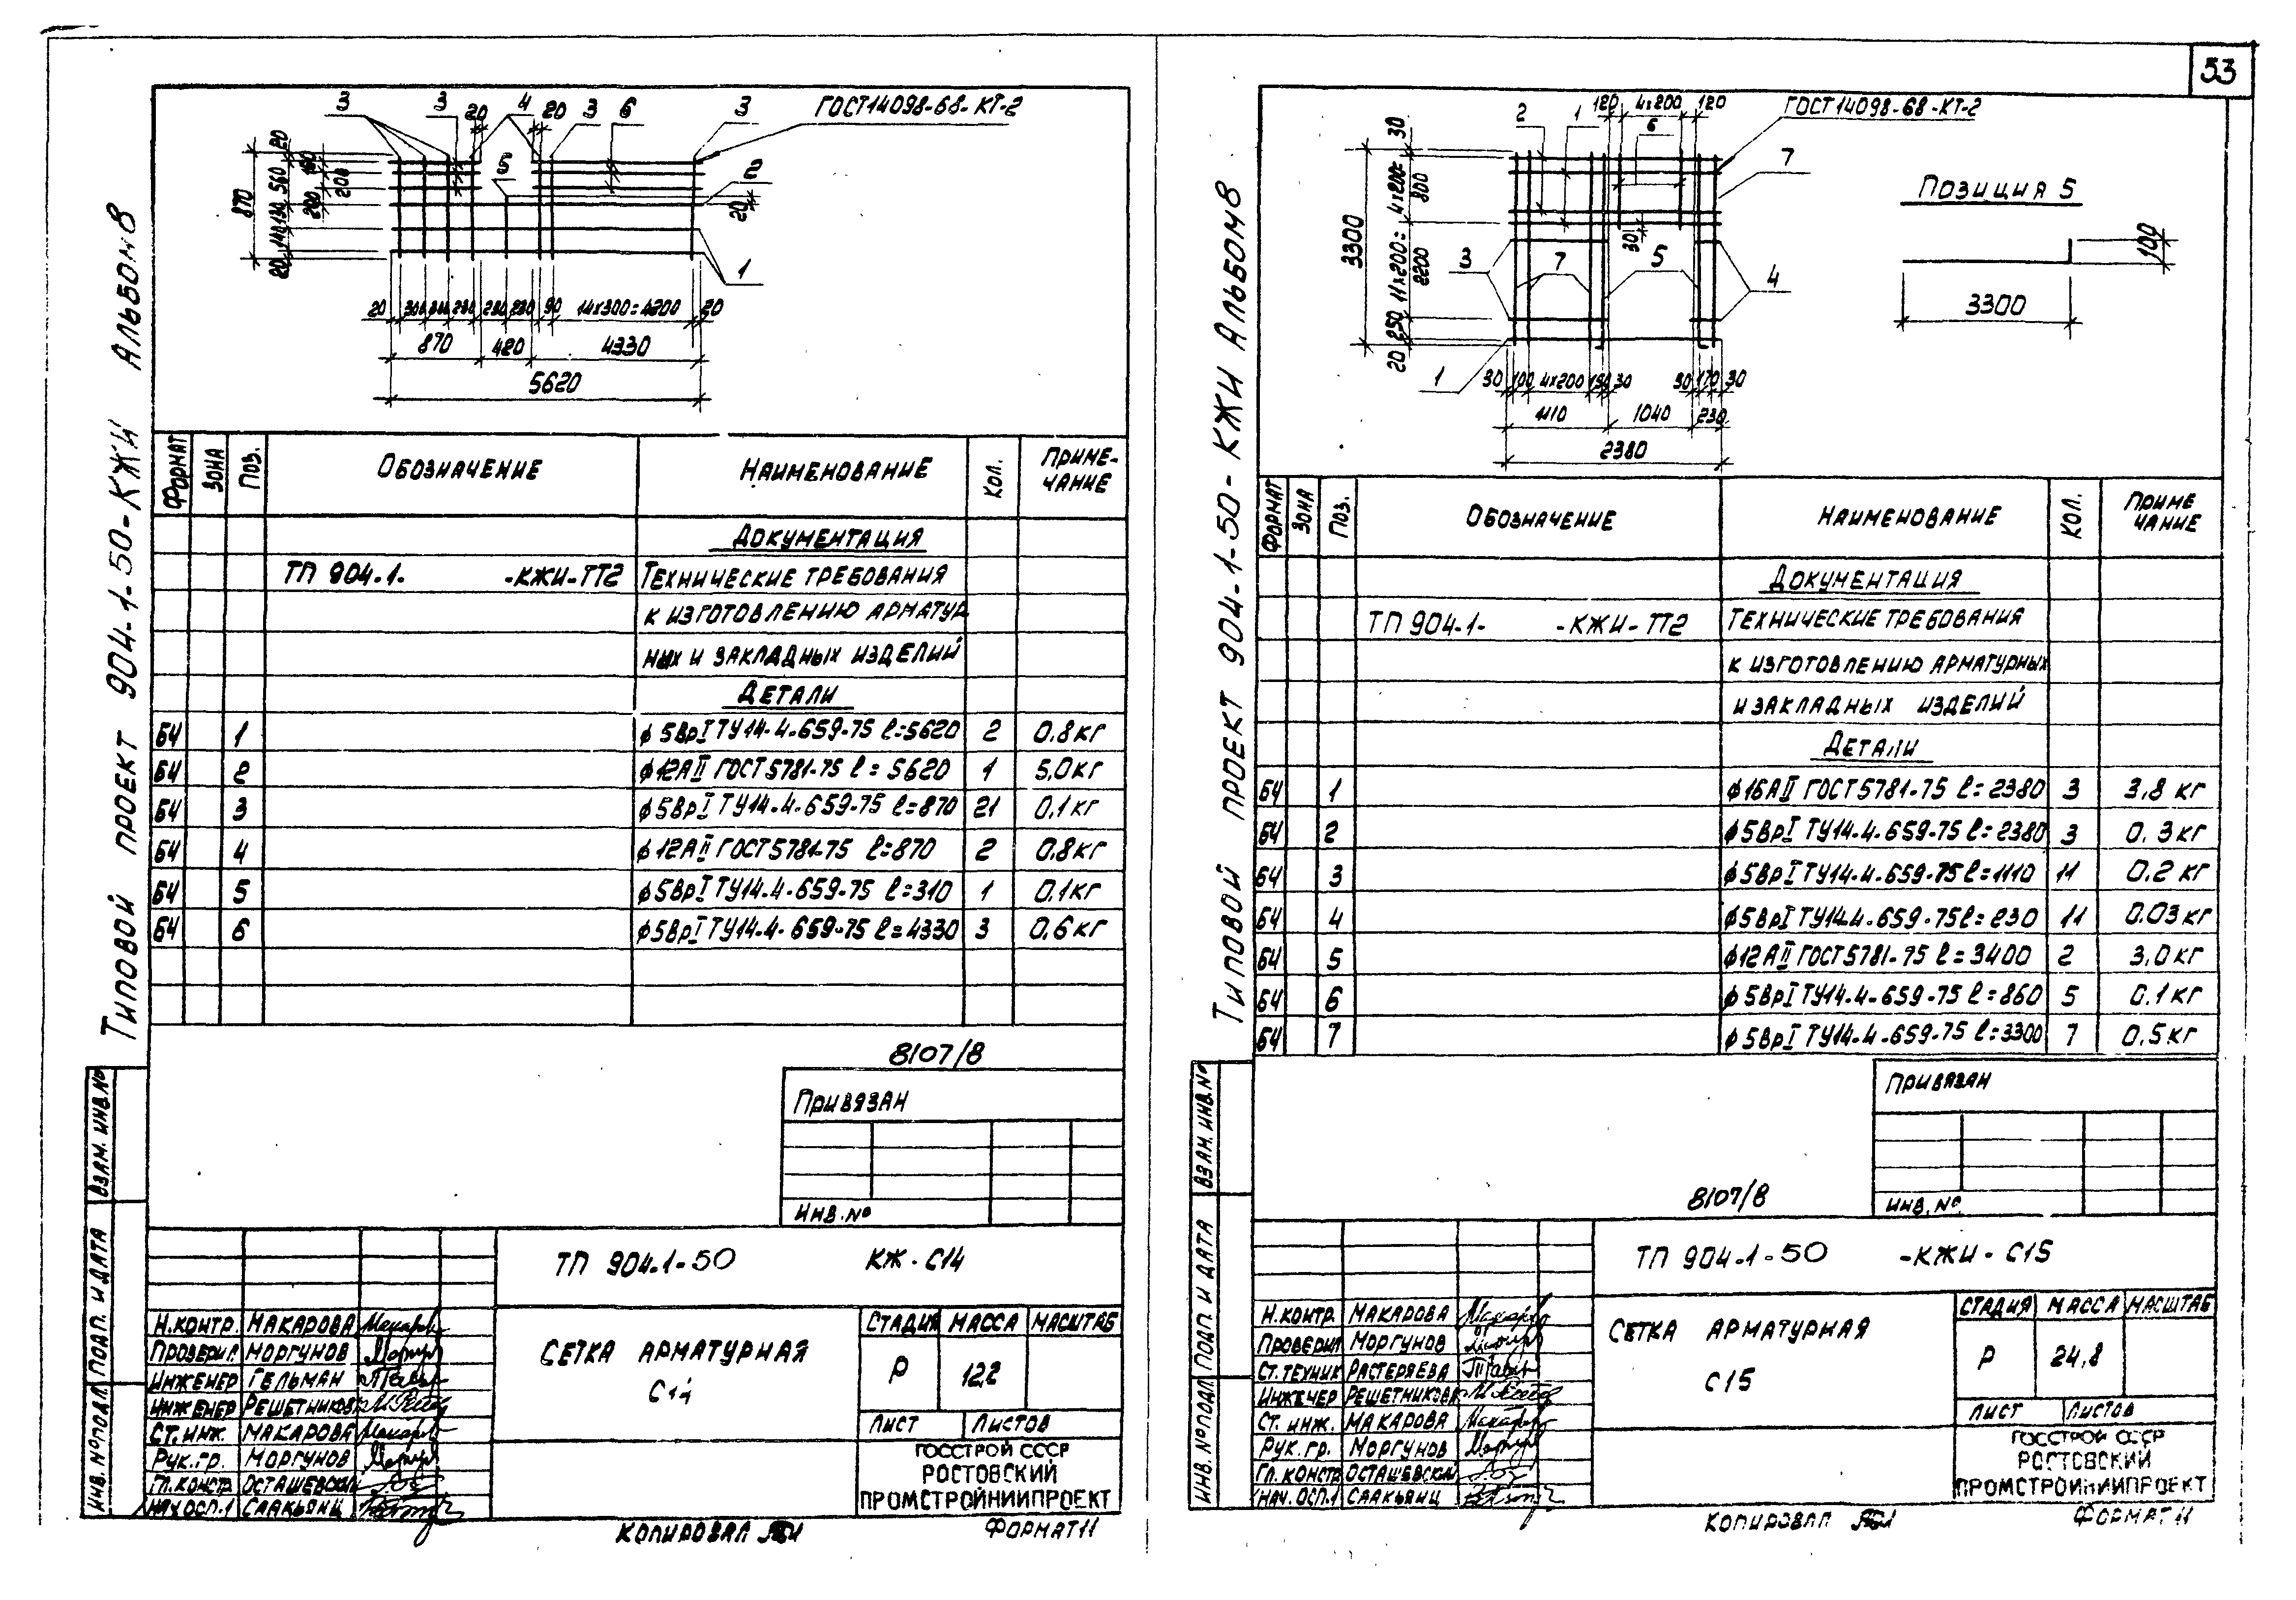 53
Типовой проект 904-1-50-КЖИ Альбом 8
3 3 20 4 20 3 6 3 ГОСТ 14098-68-КТ-2
5 2 1
870
20 560 130 140 20
200 200
20
20 300 230 90 14х300=4200 20
870 420 4330
5620
Формат Зона Поз. Обозначение Наименование Кол. Приме-
чание
Документация
ТП 904-1- -КЖИ-ТТ2 Технические требования
к изготовлению арматур
ных и закладных изделий
Детали
БЧ 1 ф5ВрI ТУ14-4-659-75 ℓ=5620 2 0,8кг
БЧ 2 ф12АII ГОСТ5781-75 ℓ=5620 1 5,0кг
БЧ 3 ф5ВрI ТУ14-4-659-75 ℓ=870 21 0,1кг
БЧ 4 ф12АII ГОСТ5781-75 ℓ=870 2 0,8кг
БЧ 5 ф5ВрI ТУ14-4-659-75 ℓ=310 1 0,1кг
БЧ 6 ф5ВрI ТУ14-4-659-75 ℓ=4330 3 0,6кг
8107/8
Привязан
Инв.№
Инв.№подл. Подп. и дата Взам. инв.№
ТП 904-1-50 КЖ-С14
Н.контр. Макарова
Проверил Моргунов
Инженер Гельман
Инженер Решетникова
Ст.инж. Макарова
Рук.гр. Моргунов
Гл.констр. Осташевский
Нач.осп.1 Саакьянц
Сетка арматурная
С14
Стадия Масса Масштаб
Р 12,2
Лист Листов
Госстрой СССР
Ростовский
Промстройниипроект
Копировал
Формат 11
Типовой проект 904-1-50-КЖИ Альбом 8
2 1 120 4х200 120 ГОСТ 14098-68-КТ-2
6 7
3300
30 4х200=800 11х200=2200 250 20
30
3 7 5 4
1
30 100 4х200 150 30 30 170 30
1110 1040 230
2380
Позиция 5
100
3300
Формат Зона Поз. Обозначение Наименование Кол. Приме
чание
Документация
ТП 904-1- -КЖИ-ТТ2 Технические требования
к изготовлению арматурных
и закладных изделий
Детали
БЧ 1 ф16АII ГОСТ5781-75 ℓ=2380 3 3,8 кг
БЧ 2 ф5ВрI ТУ14-4-659-75 ℓ=2380 3 0,3кг
БЧ 3 ф5ВрI ТУ14-4-659-75 ℓ=1110 11 0.2 кг
БЧ 4 ф5ВрI ТУ14-4-659-75 ℓ=230 11 0.03кг
БЧ 5 ф12АII ГОСТ5781-75 ℓ=3400 2 3,0кг
БЧ 6 ф5ВрI ТУ14-4-659-75 ℓ=860 5 0.1кг
БЧ 7 ф5ВрI ТУ14-4-659-75 ℓ=3300 7 0.5кг
Привязан
Инв.№
8107/8
Инв.№подл. Подп. и дата Взам. инв.№
ТП 904-1-50 -КЖИ-С15
Н.контр. Макарова
Проверил Моргунов
Ст.техник Растеряева
Инженер Решетникова
Ст. инж. Макарова
Рук.гр. Моргунов
Гл.констр Осташевский
Нач.осп.1 Саакьянц
Сетка арматурная
С15
Стадия Масса Масштаб
Р 24,8
Лист Листов
Госстрой СССР
Ростовский
Промстройниипроект
Копировал
Формат 11